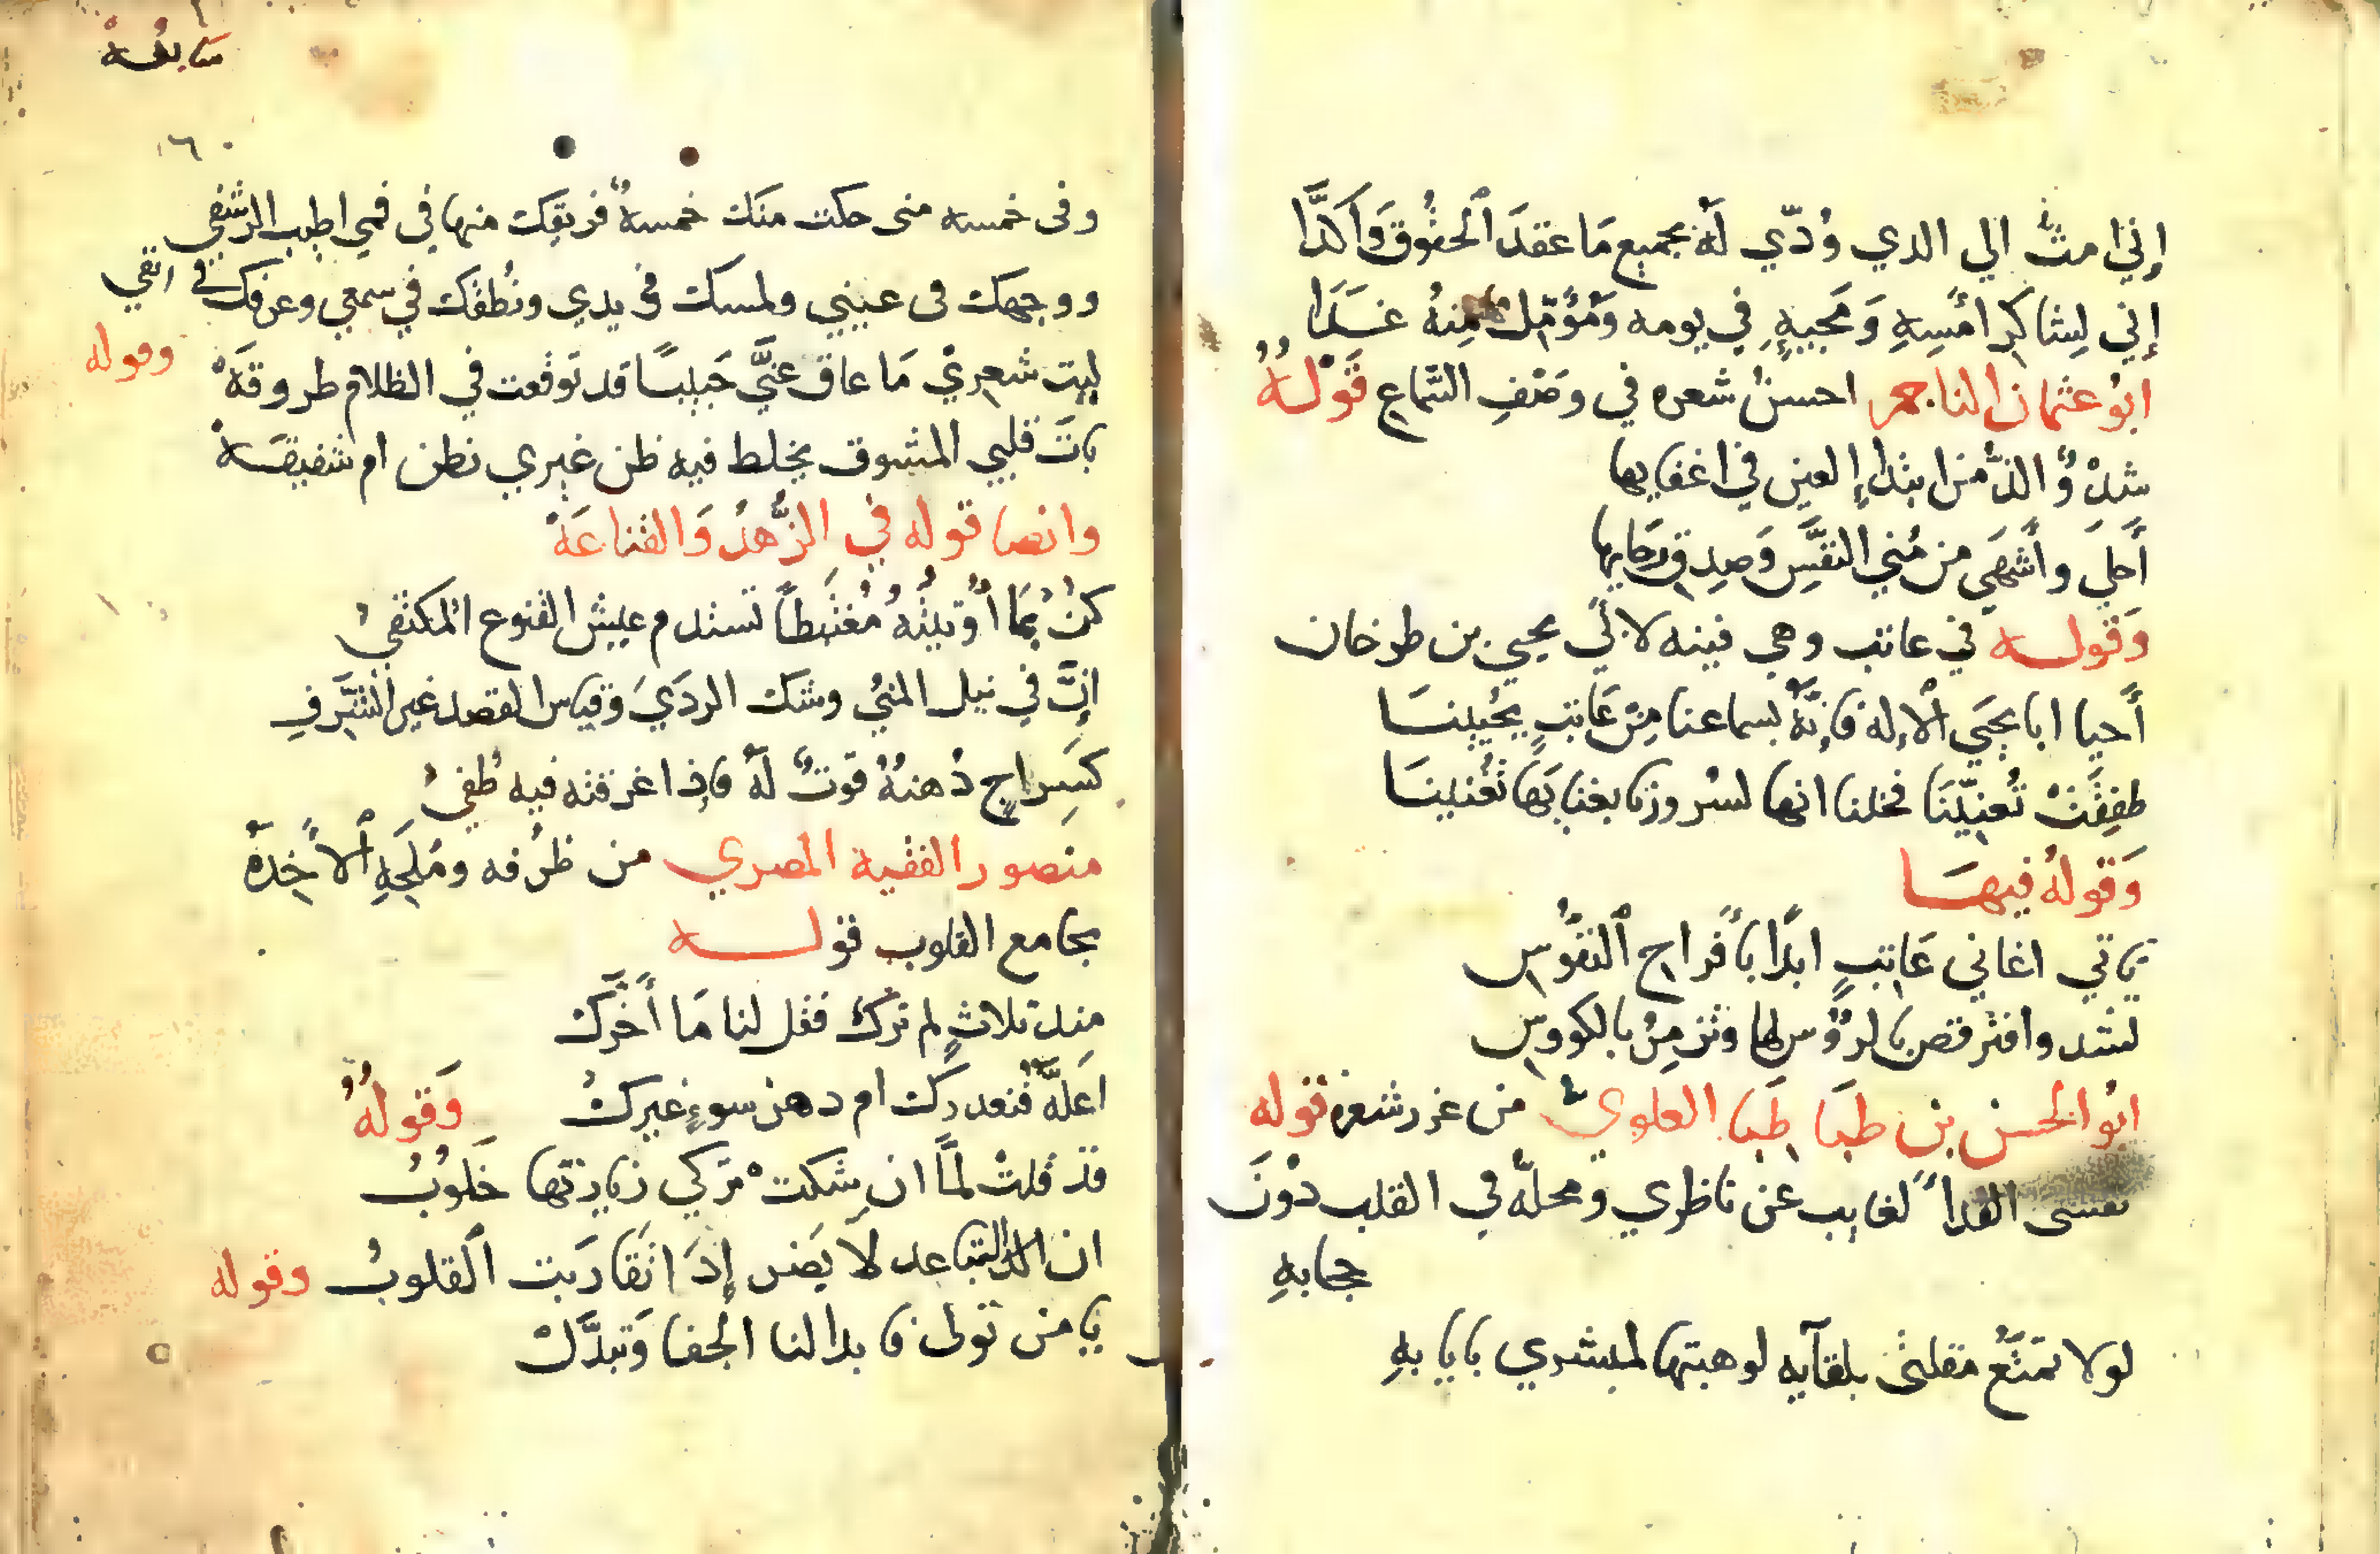 إني امتّ الي الدي وُدّي لَهُ بجميع مَا عقدَ الحُقُوقَ وَاَكَّدَا
إني لِشاكر أمْسِهِ وَمحبيهِ في يومه وَمُؤمّل منهُ غَدَا
ابُو عثمان الناجم احسنُ شعره في وصْفِ السَّماع قَوْلُهُ
شدْوٌ الذّ من ابتدا العين في اغفايها
أَحلَ وأَشهَي من مُني النفَّسِ وَصِدقِ رَجايها
وَقولــه في عاتب وهي قينه لأبي يحيي بن طرخان
أَحيا ابا يحيَي الْإله فإنّهُ بسماعنا مِنْ عَاتبٍ يحُيينَا
طفِقَتْ تُغنِّينَا فخلنا انها لسُرورنا بغنايَها تُغنينَا
وَقولهُ فيهَـا
ياتي اغاني عَاتِبٍ ابدًا بأفَراح النفُوسِ
تشدوا فنرقص بالرؤُوس لها ونزمِرُ بالكووسِ
ابُو الحسن بن طبَا طَبَا العلوي من غرر شعره قوله
نفسى الفدآ لغايب عن ناظري ومحلّه في القلب دوْنَ
حجابهِ
لولا تمتّعُ مقلتى بلقآيه لوهبتها لمبشري باِيابهِ
وفى خمسه منى حلت منك خمسةٌ فريقك منها في فمي اطيب الرشفِ
ووجهك فى عيني ولمسك في يدي ونُطقك في سمعي وعرفك في انفي
وقوله
ليت شعريْ مَا عاق عنَّي حَبيبًا قد توقعت في الظلام طروقَهْ
باتَ قلبي المشوق يخلط فيه ظن غيري بظن ام شفيقَـهْ
وايضا قوله في الزُّهدُ وَالقناعَةْ
كنْ بمَا أُوتيتُهُ مُغتَبطاً تستدم عيش القنوع المكتفيْ
إنَّ في نيل المنيُ وشك الردَيَ وقياس القصد غير السَّرَفِ
كسَراجٍ دُهنهُ قوتٌ لهُ فاِذا اغرقته فيه طُفيْ
منصور الفقيه المصري من ظرُفه ومُلَحِهِ الْأَخِذَهْ
بجامع القلوب قولـــه
منذ ثلاثٍ لم نرَكْ فقل لنا مَا أَخَّرَكْ
اعلّةٌ فنعذرك ام دهن سوءٍ غيركْ وَقولُهُ
قدْ قلتُ لمَّا ان شكتْ تركي زيارتها خَلُوبُ
ان التباعد لا يَضر إذَا تَقَارَبت القلوبُ وقوله
يا من تولى فابدا لنا الجفا وَتبدَّلْ